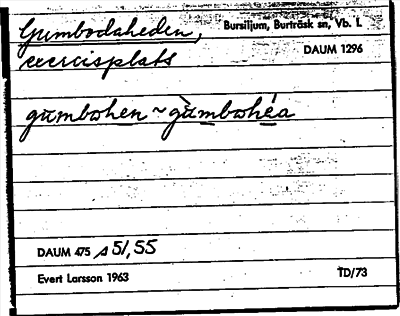 Gumbodaheden, Bursiljum, Burträsk sn, Vb. l.
exercisplats DAUM 1296
gumbohen ~ gùmbohéa
DAUM 475 s 51, 55
Evert Larsson 1963 TD/73